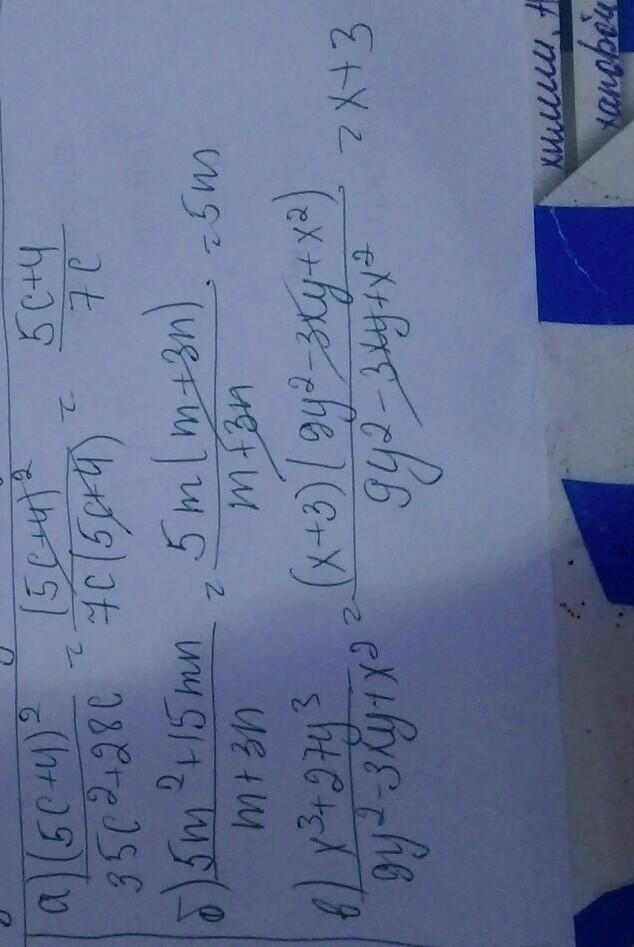 а) (5c+4)² / 35c²+28c = (5c+4)² / 7c(5c+4) = 5c+4 / 7c
б) 5m²+15mn / m+3n = 5m(m+3n) / m+3n = 5m
в) x³+27y³ / 9y²-3xy+x² = (x+3)(9y²-3xy+x²) / 9y²-3xy+x² = x+3
химии, А
хановой